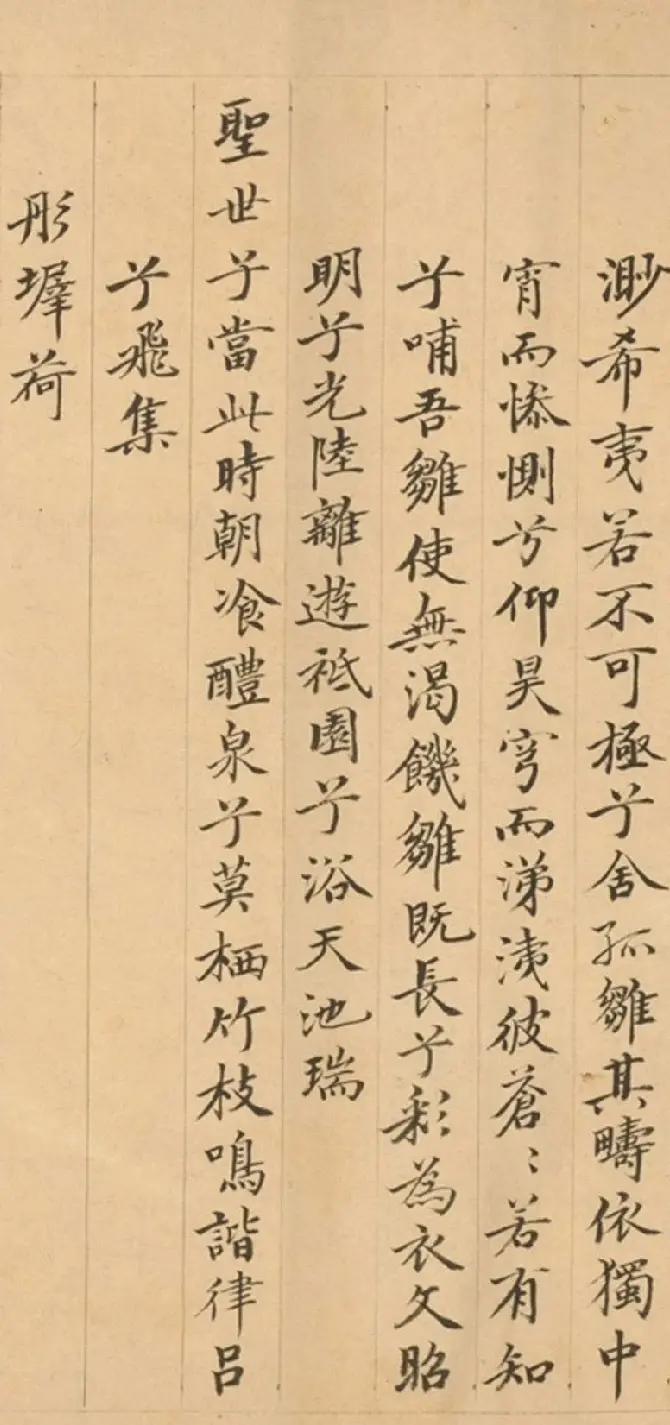 渺希夷若不可極兮舍孤雛其疇依獨中
宵而惨惻兮仰昊穹而涕洟彼蒼〻若有知
兮哺吾雛使無渴饑雛既長兮彩為衣文昭
明兮光陸離遊祗園兮浴天池瑞
聖世兮當此時朝飡醴泉兮莫栖竹枝鳴諧律呂
兮飛集
彤墀荷